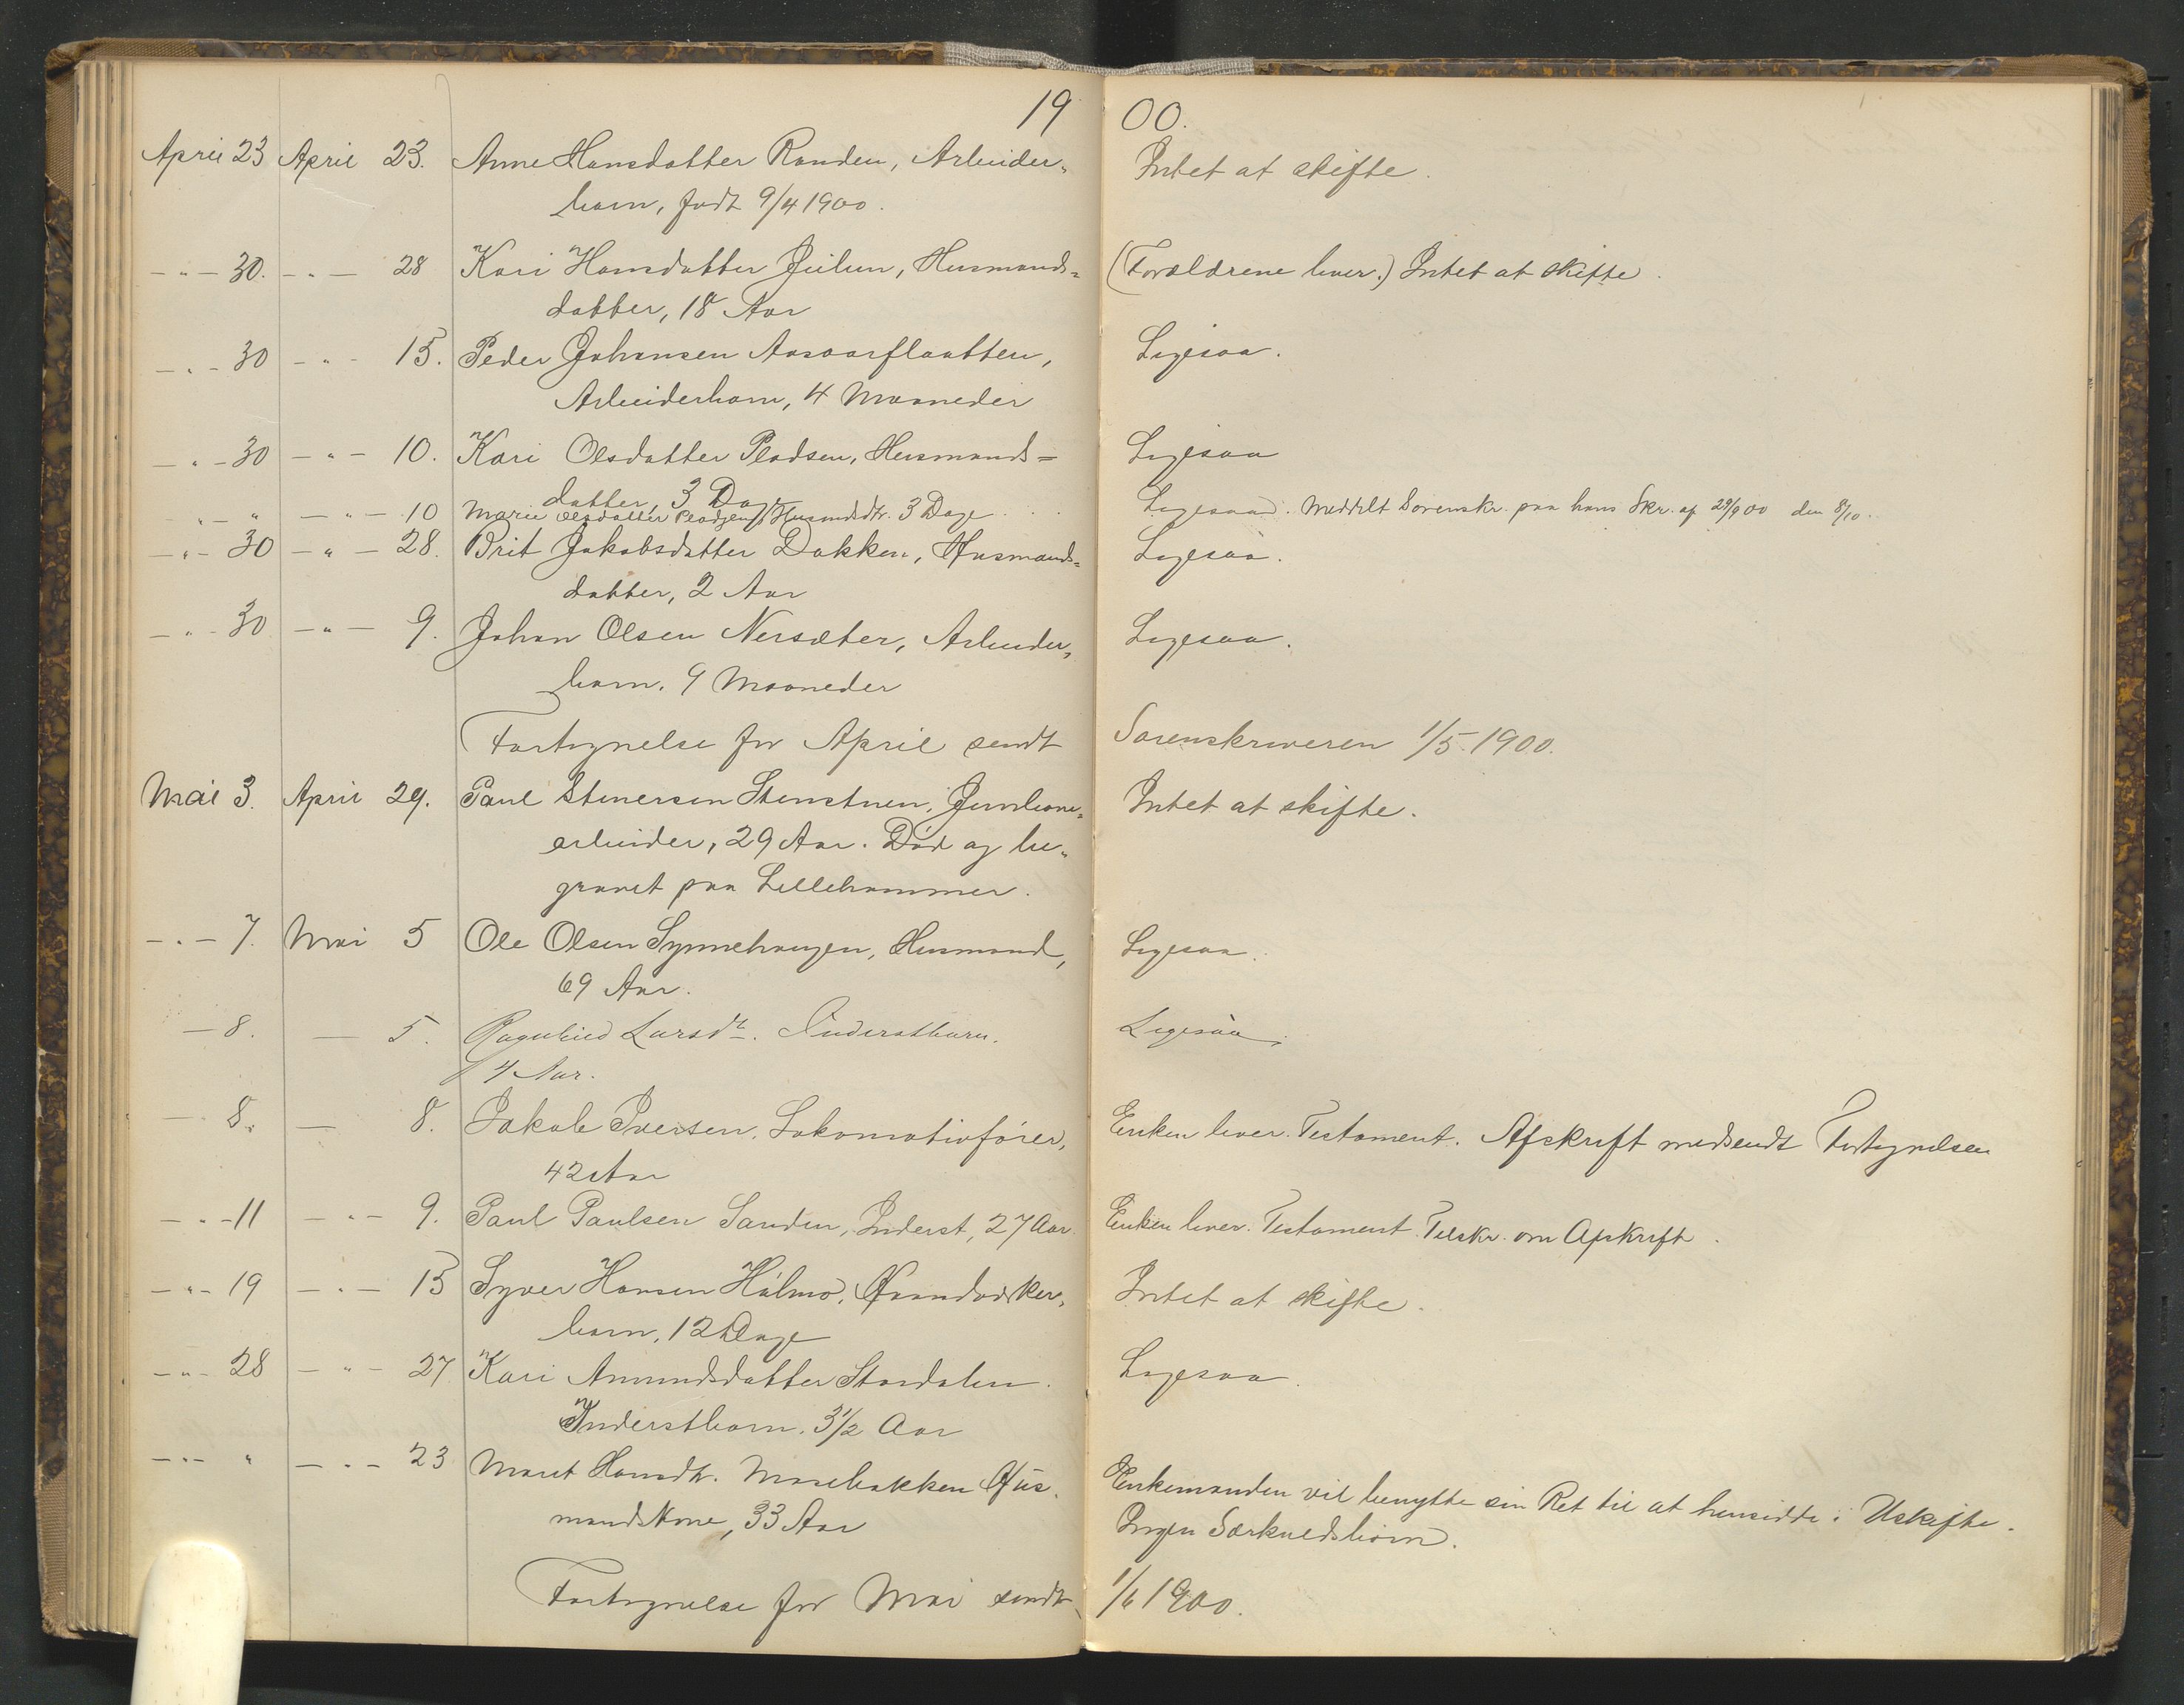 1900.
April 23 April 23. Anne Hansdatter Randen, Arbeider- Intet at skifte.
barn, født 9/4 1900.
-"- 30. -"- 28 Kari Hansdatter Husmands= (Forældrene lever.) Intet at skifte.
datter, 18 Aar
-"- 30 -"- 15. Peder Johansen Aasaarflaatten, Ligesaa.
Arbeiderbarn, 4 Maaneder
-"- 30 -"- 10. Kari Olsdatter Pladsen, Husmands= Ligesaa
datter, 3 Dage
-"- " -"- 10 Marie Olsdatter Pladsen, Husmdsdtr. 3 Dage Ligesaa. Meddelt Sorenskr. paa hans Skr. af 29/9 00 den 8/10.
-"- 30 -"- 28. Brit Jakobsdatter Dakken, Husmands= Ligesaa.
datter, 2 Aar
-"- 30 -"- 9. Johan Olsen Nersæter, Arbeider- Ligesaa.
barn. 9 Maaneder
Fortegnelse for April sendt Sorenskriveren 1/5 1900.
Mai 3. April 29. Paul Stenersen Stenstuen, Jernbane= Intet at skifte.
arbeider, 29 Aar. Død og be-
gravet paa Lillehammer.
-"- 7. Mai 5 Ole Olsen Synnehaugen, Husmand, Ligesaa.
69 Aar.
— 8. — 5. Ragnhild Larsdt. Inderstbarn. Ligesaa.
4 Aar.
— 8. — 8. Jakob Iversen, Lokomotivfører, Enken lever. Testament. Afskrift medsendt Fortegnelsen
42 Aar
-"- 11 -"- 9. Paul Paulsen Sanden, Inderst, 27 Aar Enken lever. Testament. Tilskr. om Afskrift.
-"- 19 -"- 15 Syver Hansen Holmo, Haandværker- Intet at skifte.
barn, 12 Dage
-"- 28 -"- 27 Kari Amundsdatter Stordalen. Ligesaa.
Inderstbarn. 3½ Aar
-"- " -"- 23 Marit Hansdtr. Mosebakken Hus- Enkemanden vil benytte sin Ret til at hensidde i Uskifte.
mandskone, 33 Aar Ingen Særkuldsbørn.
Fortegnelse for Mai sendt 1/6 1900.